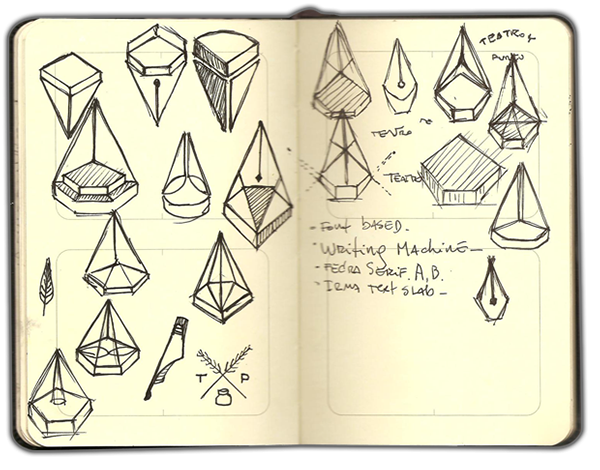 T P
TEATRO
TEATRO
TEATRO
- FONT BASED -
- WRITING MACHINE -
- FEDRA SERIF. A, B.
- IRMA TEXT SLAB -